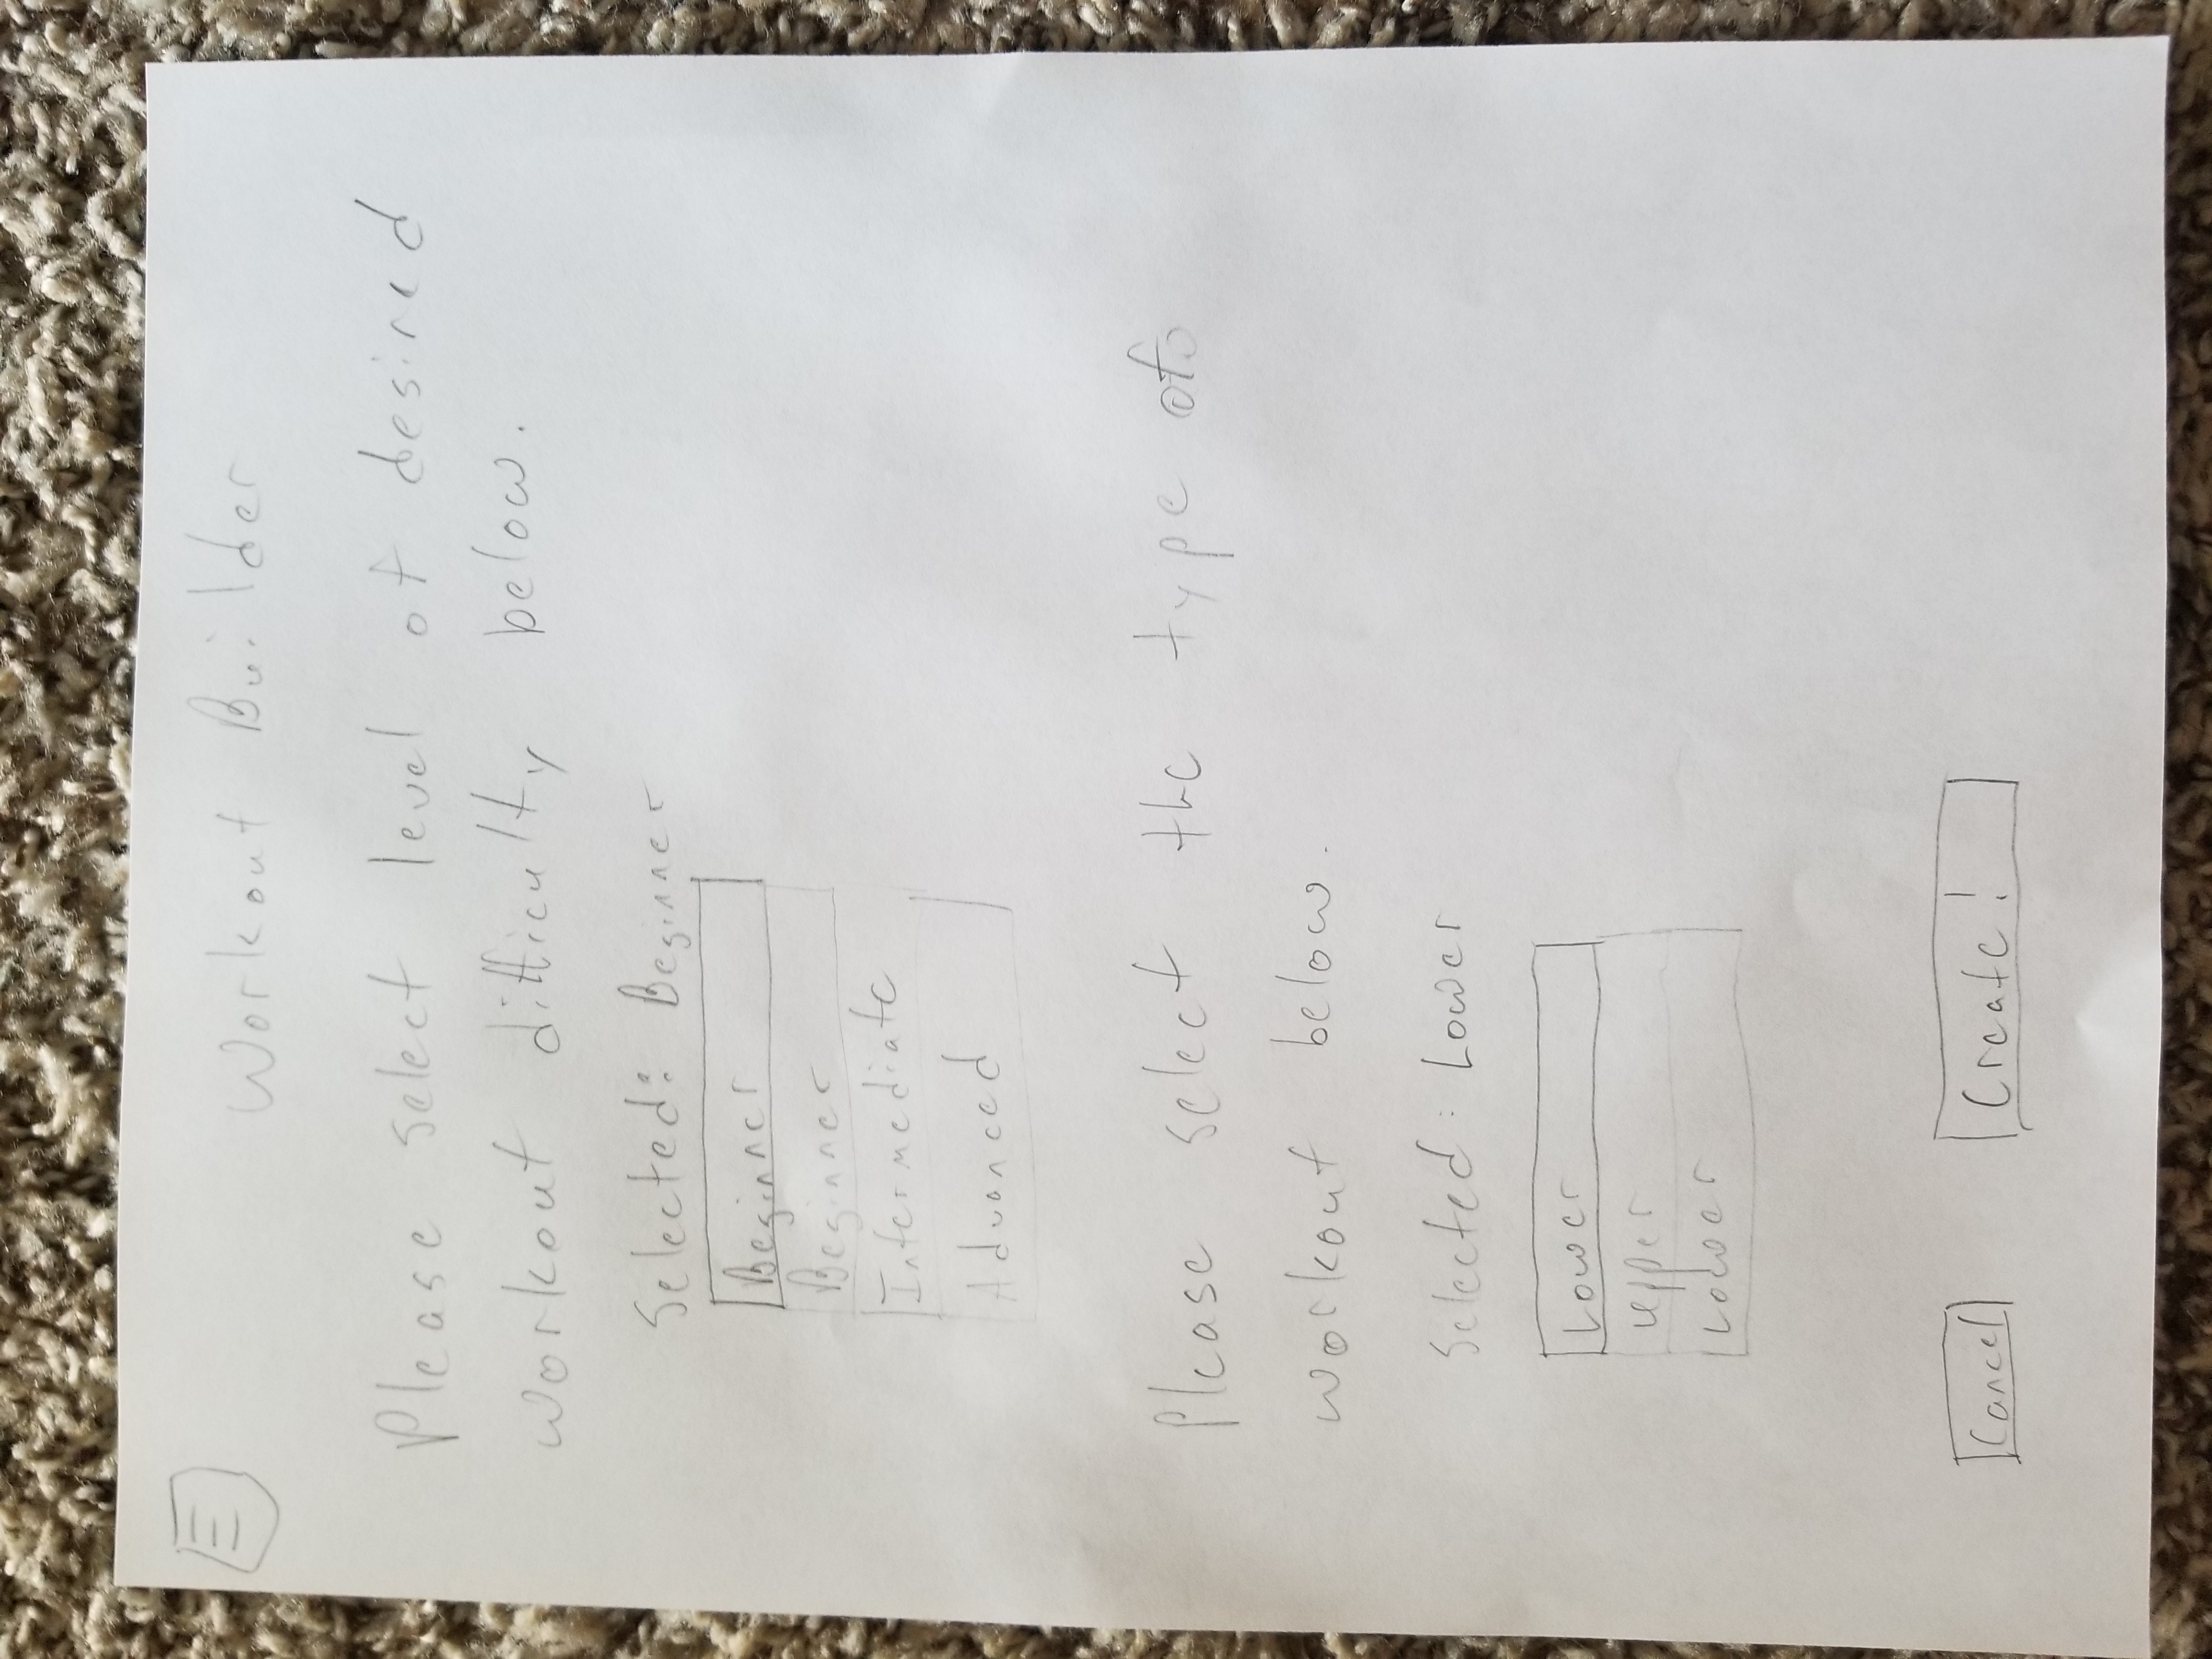 Workout Builder
Please select level of desired
workout difficulty below.
Selected: Beginner
Beginner
Beginner
Intermediate
Advanced
Please select the type of
workout below.
Selected: Lower
Lower
Upper
Lower
Cancel
Create!